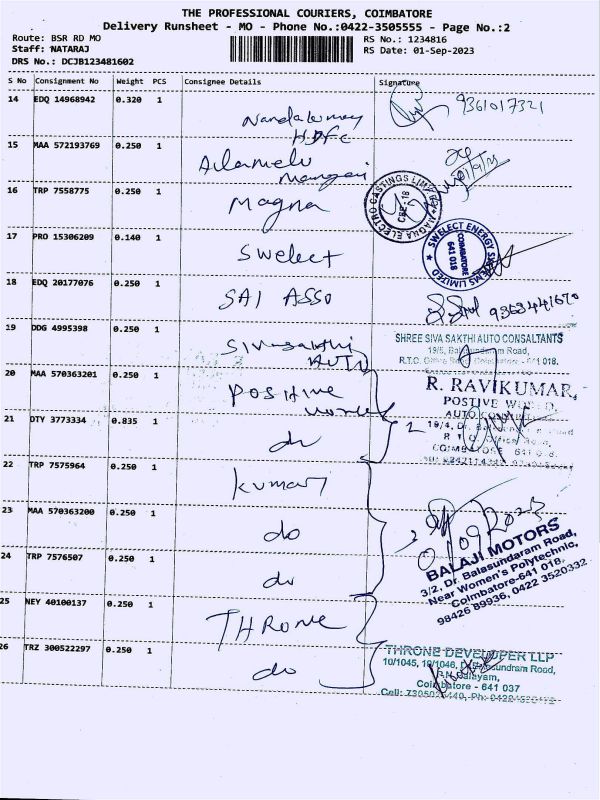 THE PROFESSIONAL COURIERS, COIMBATORE
Delivery Runsheet - MO - Phone No.:0422-3505555 - Page No.:2
Route: BSR RD MO
RS No.: 1234816
Staff: NATARAJ
RS Date: 01-Sep-2023
DRS No.: DCJB123481602
S No Consignment No Weight PCS Consignee Details Signature
14 EDQ 14968942 0.320 1
HDFC
9361017321
15 MAA 572193769 0.250 1
16 TRP 7558775 0.250 1 Magna
MAGNA ELECTRO CASTINGS LIMITED
CBE-18
17 PRO 15306209 0.140 1 Swelect
SWELECT ENERGY SYSTEMS LIMITED
COIMBATORE
641 018
18 EDQ 20177076 0.250 1 SAI ASSO
19 DDG 4995398 0.250 1 Sivasakthi
AUTO
SHREE SIVA SAKTHI AUTO CONSALTANTS
19/5, Balasundaram Road,
R.T.O. Office Road, Coimbatore - 641 018.
20 MAA 570363201 0.250 1 Positive
World
R. RAVIKUMAR,
POSTIVE WORLD,
21 DTY 3773334 0.835 1 do
2
22 TRP 7575964 0.250 1 Kumari
23 MAA 570363200 0.250 1 do
24 TRP 7576507 0.250 1 do
BALAJI MOTORS
3/2, Dr. Balasundaram Road,
Near Women's Polytechnic,
Coimbatore-641 018.
98426 89936, 0422 3520332
25 NEY 40100137 0.250 1 THRONE
26 TRZ 300522297 0.250 1 do
THRONE DEVELOPER LLP
Coimbatore - 641 037